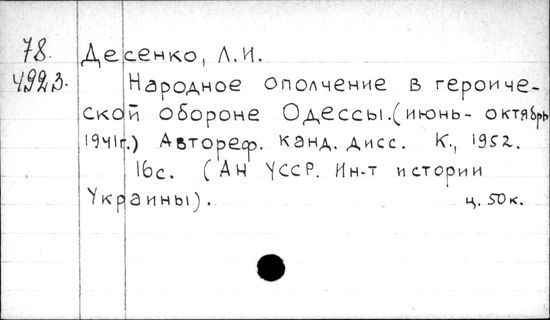 78. Десенко, Л.И.
4923. Народное ополчение в героиче-
ской обороне Одессы. (июнь- октябрь
1941г.) Автореф. канд. дисс. К., 1952.
16с. (Ан УССР. Ин-т истории
Украины). ц. 50к.